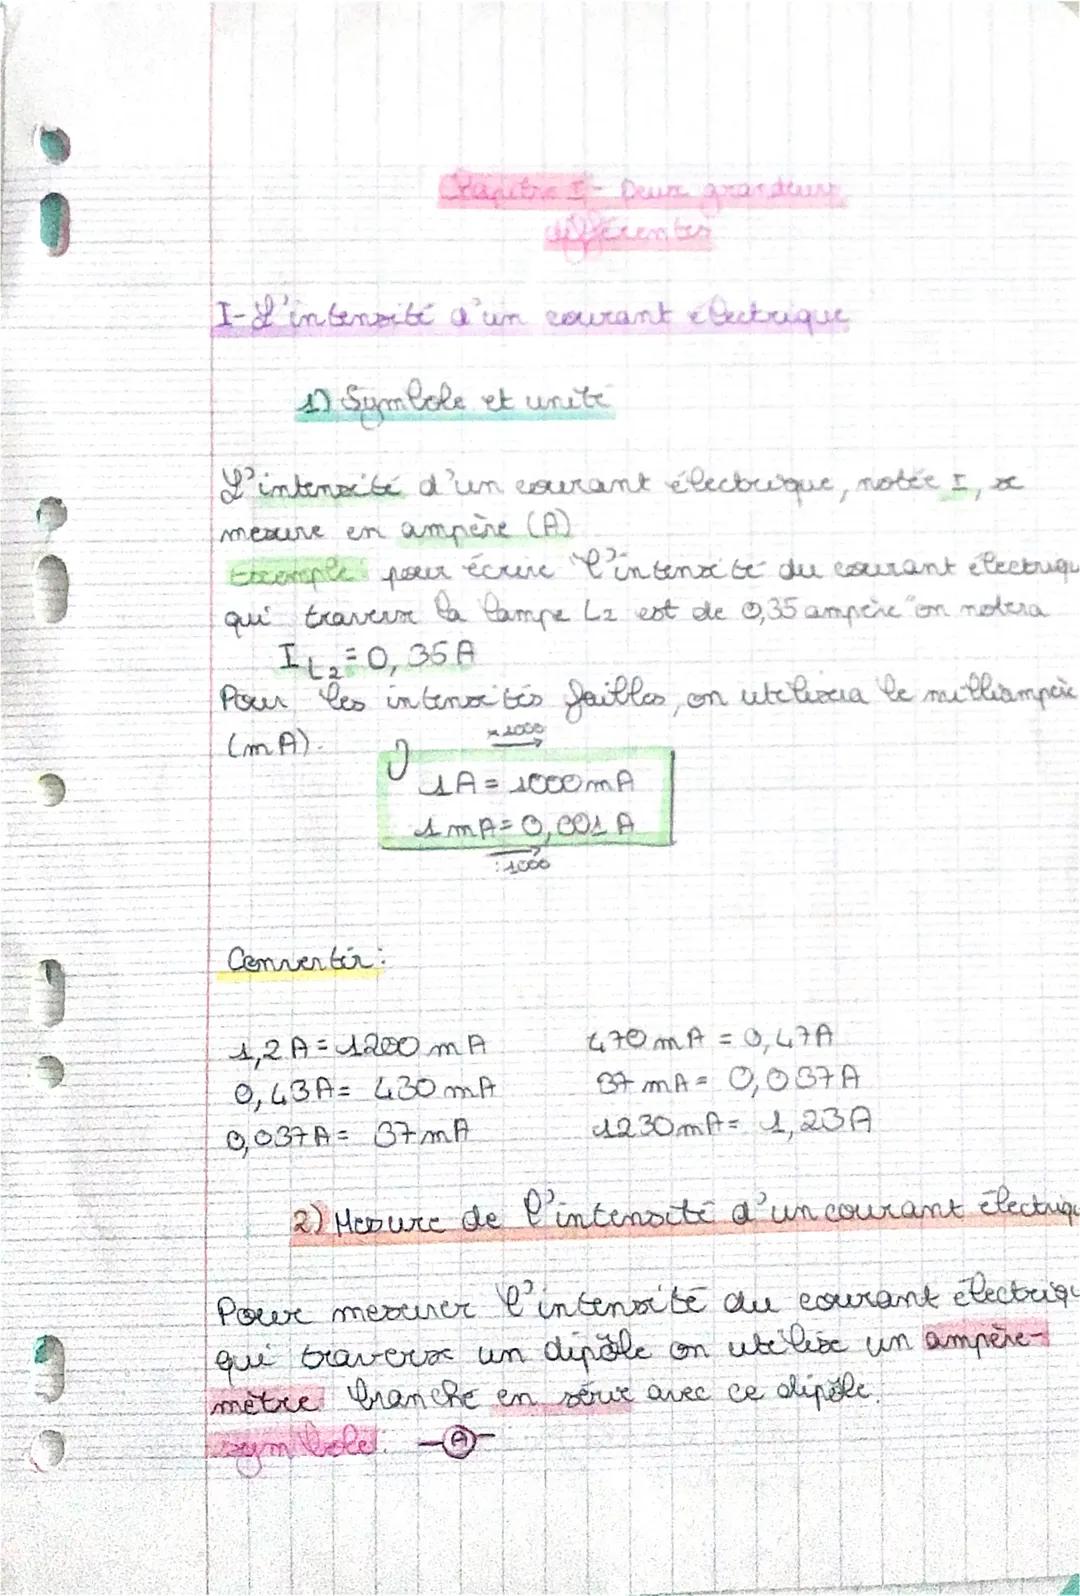 Chapitre I - Deux grandeurs
différentes
I- L'intensité d'un courant électrique
1) Symbole et unité
L'intensité d'un courant électrique, notée I, se
mesure en ampère (A)
Exemple: pour écrire "l'intensité du courant électriqu
qui traverse la lampe L2 est de 0,35 ampère" on notera
I L2 = 0,35A
Pour les intensités faibles, on utilisera le milliampère
(mA).
x 1000
1A = 1000mA
1mA = 0,001A
:1000
Convertir:
1,2A = 1200 mA 470 mA = 0,47A
0,43A = 430 mA 37 mA = 0,037A
0,037A = 37mA 1230mA = 1,23A
2) Mesure de l'intensité d'un courant électriqu
Pour mesurer l'intensité du courant électriqu
qui traverse un dipôle on utilise un ampère-
mètre branché en série avec ce dipôle.
symbole: A